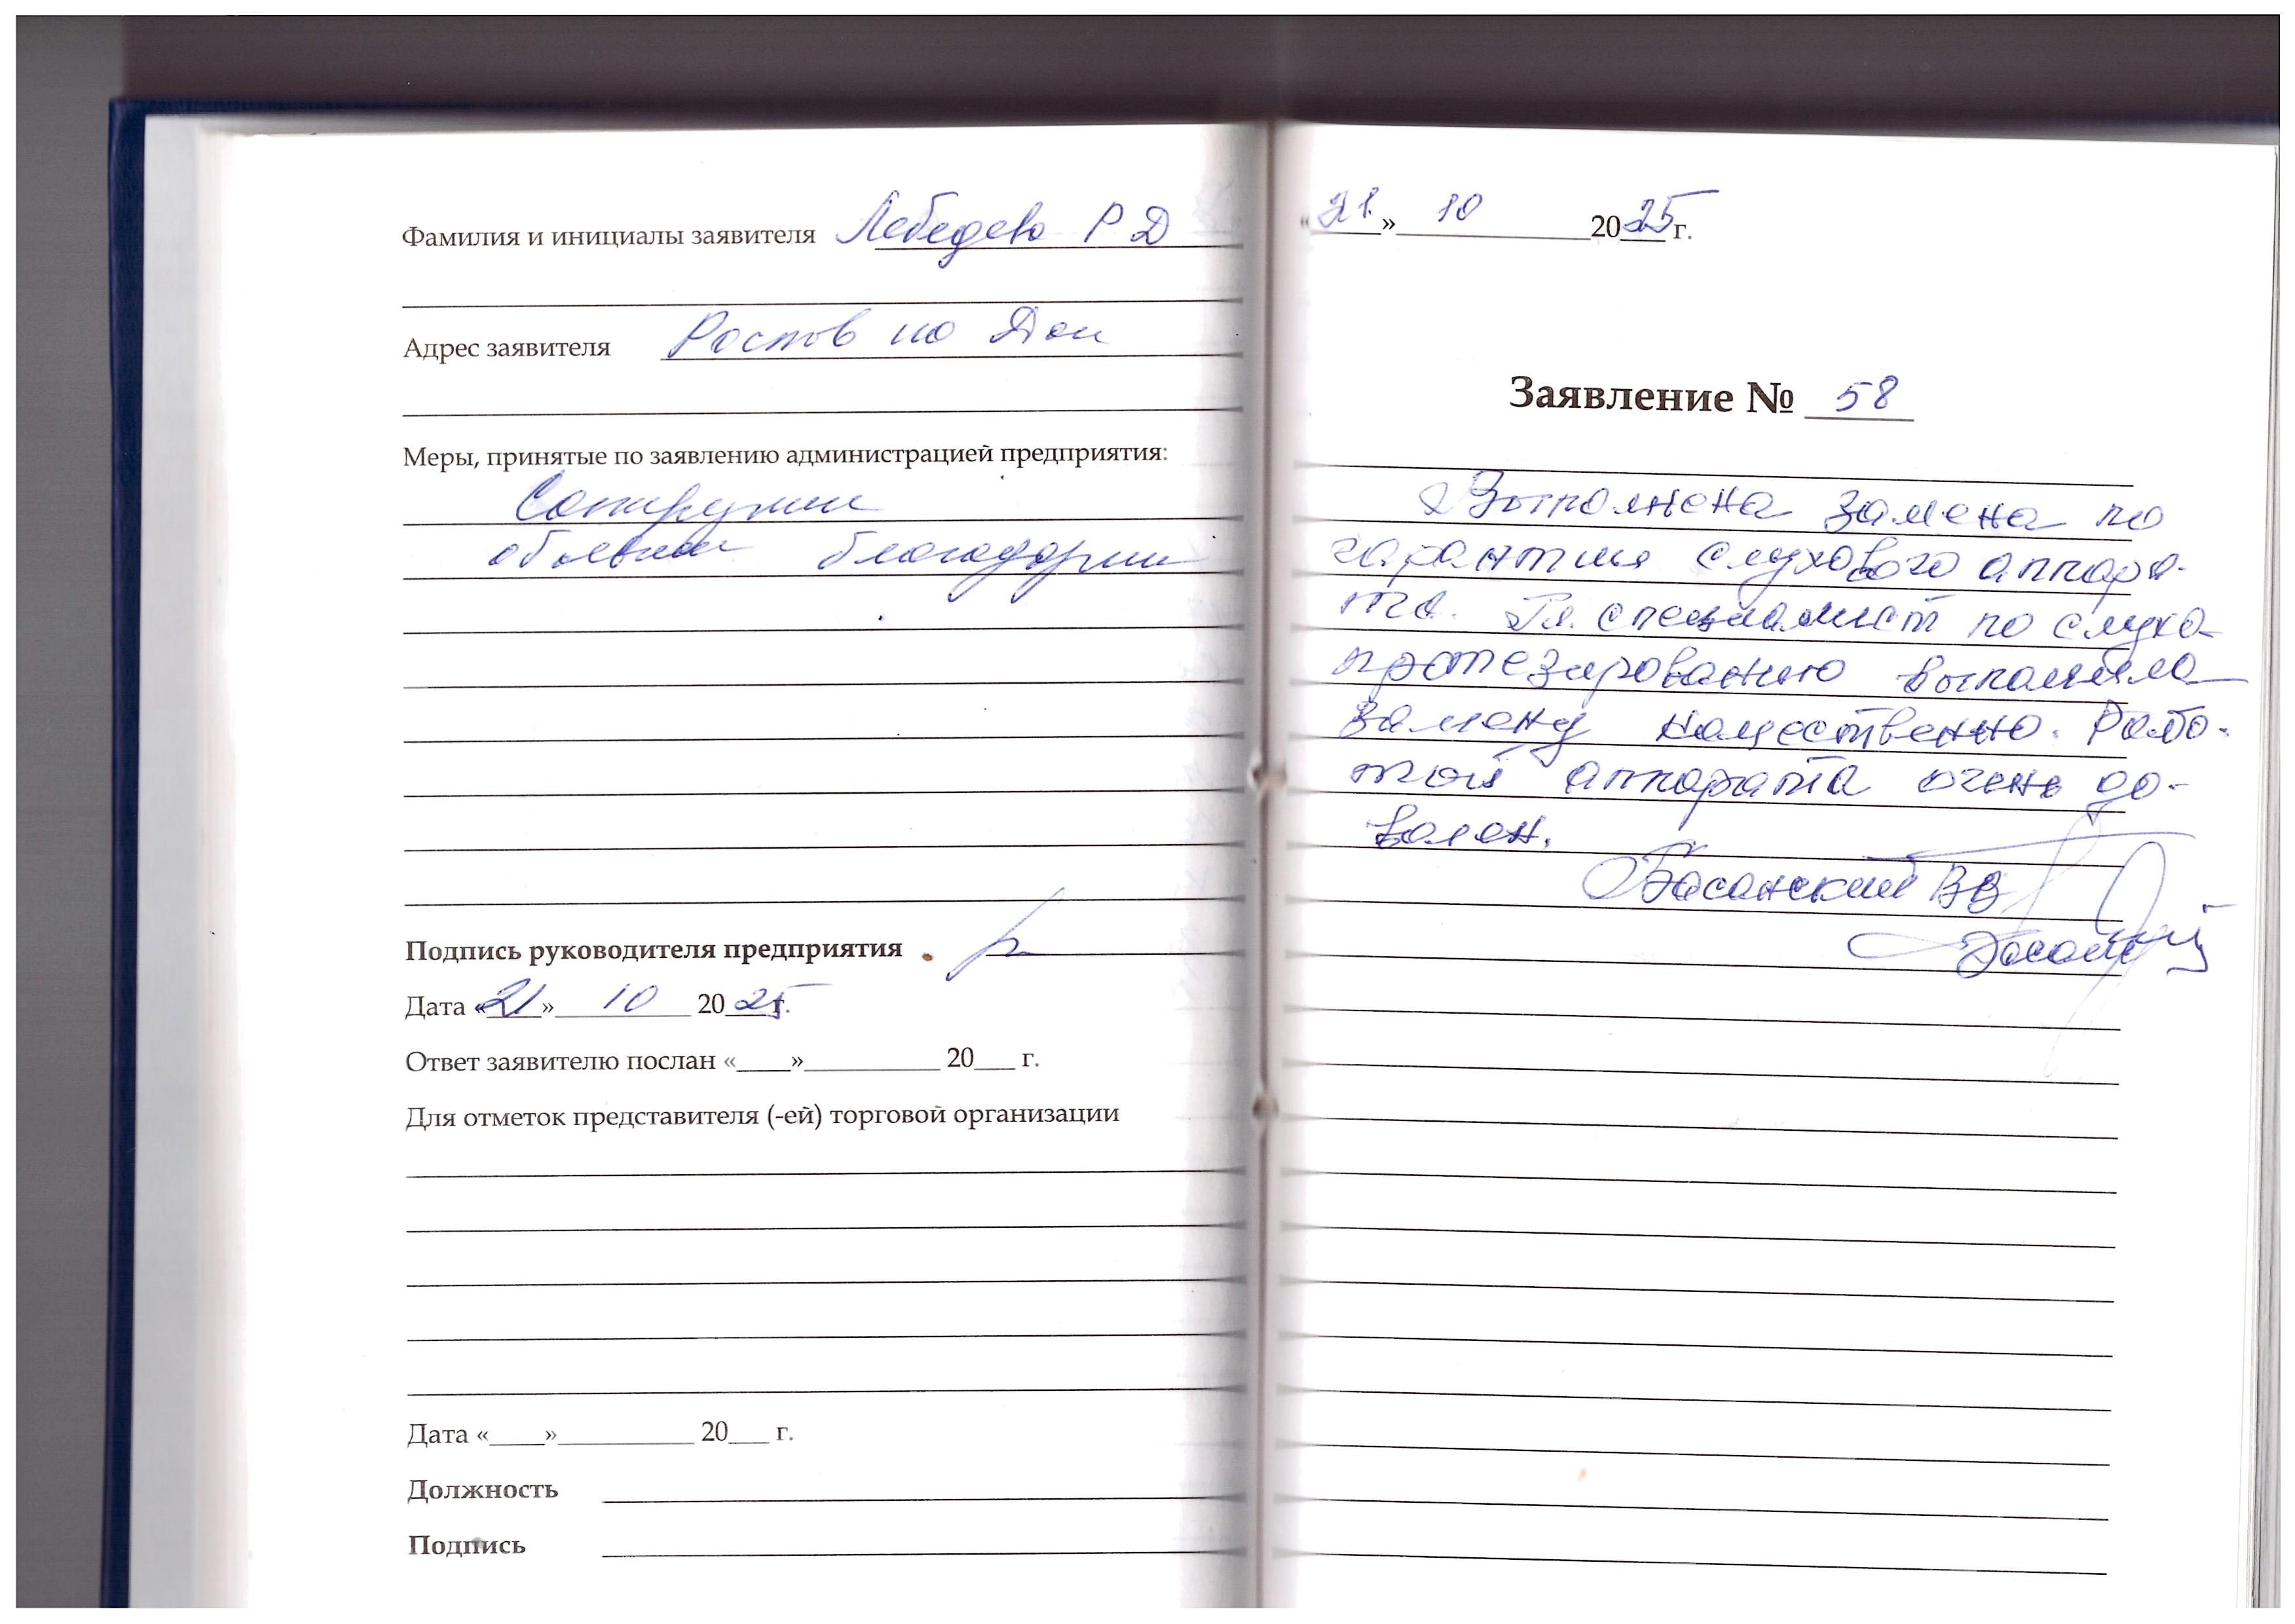 Фамилия и инициалы заявителя Лебедева Р Д
Адрес заявителя Ростов на Дон
Меры, принятые по заявлению администрацией предприятия:
Сотрудни
объявлен благодарн
Подпись руководителя предприятия
Дата «21» 10 2025 г.
Ответ заявителю послан «____»__________ 20___ г.
Для отметок представителя (-ей) торговой организации
Дата «____»__________ 20___ г.
Должность
Подпись
«21» 10 2025 г.
Заявление № 58
Выполнена замена по
гарантии слухового аппара-
та. Гл. специалист по слухо-
протезированию выполнила
замену качественно. Рабо-
той аппарата очень до-
волен.
Басанский ВВ